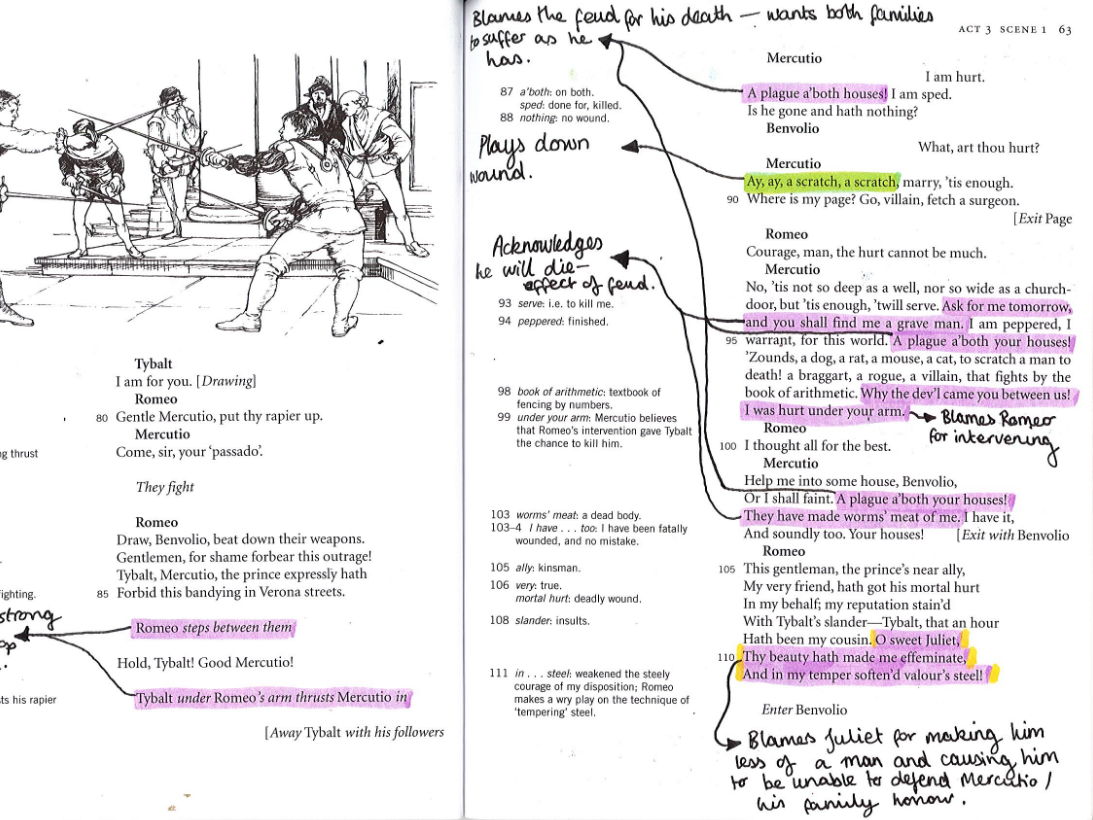 ng thrust
ighting.
strong
ts his rapier
Tybalt
I am for you. [Drawing]
Romeo
80 Gentle Mercutio, put thy rapier up.
Mercutio
Come, sir, your ‘passado’.
They fight
Romeo
Draw, Benvolio, beat down their weapons.
Gentlemen, for shame forbear this outrage!
Tybalt, Mercutio, the prince expressly hath
85 Forbid this bandying in Verona streets.
Romeo steps between them
Hold, Tybalt! Good Mercutio!
Tybalt under Romeo’s arm thrusts Mercutio in
[Away Tybalt with his followers
ACT 3 SCENE 1 63
Blames the feud for his death – wants both families
to suffer as he
has.
87 a’both: on both.
sped: done for, killed.
88 nothing: no wound.
Plays down
wound.
Acknowledges
he will die –
effect of feud.
93 serve: i.e. to kill me.
94 peppered: finished.
98 book of arithmetic: textbook of
fencing by numbers.
99 under your arm: Mercutio believes
that Romeo’s intervention gave Tybalt
the chance to kill him.
103 worms’ meat: a dead body.
103–4 I have . . . too: I have been fatally
wounded, and no mistake.
105 ally: kinsman.
106 very: true.
mortal hurt: deadly wound.
108 slander: insults.
111 in . . . steel: weakened the steely
courage of my disposition; Romeo
makes a wry play on the technique of
‘tempering’ steel.
Mercutio
I am hurt.
A plague a’both houses! I am sped.
Is he gone and hath nothing?
Benvolio
What, art thou hurt?
Mercutio
Ay, ay, a scratch, a scratch, marry, ’tis enough.
90 Where is my page? Go, villain, fetch a surgeon.
[Exit Page
Romeo
Courage, man, the hurt cannot be much.
Mercutio
No, ’tis not so deep as a well, nor so wide as a church-
door, but ’tis enough, ’twill serve. Ask for me tomorrow,
and you shall find me a grave man. I am peppered, I
95 warrant, for this world. A plague a’both your houses!
’Zounds, a dog, a rat, a mouse, a cat, to scratch a man to
death! a braggart, a rogue, a villain, that fights by the
book of arithmetic. Why the dev’l came you between us!
I was hurt under your arm.
Blames Romeo
for intervening
Romeo
100 I thought all for the best.
Mercutio
Help me into some house, Benvolio,
Or I shall faint. A plague a’both your houses!
They have made worms’ meat of me. I have it,
And soundly too. Your houses! [Exit with Benvolio
Romeo
105 This gentleman, the prince’s near ally,
My very friend, hath got his mortal hurt
In my behalf; my reputation stain’d
With Tybalt’s slander—Tybalt, that an hour
Hath been my cousin. O sweet Juliet,
110 Thy beauty hath made me effeminate,
And in my temper soften’d valour’s steel!
Enter Benvolio
Blames Juliet for making him
less of a man and causing him
to be unable to defend Mercutio /
his family honour.